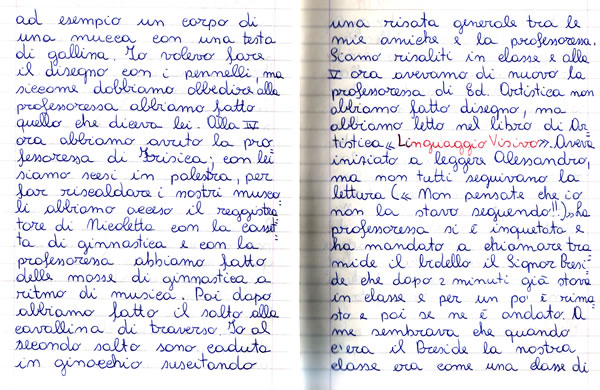 ad esempio un corpo di
una mucca con una testa
di gallina. Io volevo fare
il disegno con i pennelli, ma
siccome dobbiamo obbedire alla
professoressa abbiamo fatto
quello che diceva lei. Alla IV
ora abbiamo avuto la pro-
fessoressa di Frisica; con lei
siamo scesi in palestra, per
far riscaldare i nostri musco-
li abbiamo acceso il reggistra-
tore di Nicoletta con la casset-
ta di ginnastica e con la
professoressa abbiamo fatto
delle mosse di ginnastica a
ritmo di musica. Poi dopo
abbiamo fatto il salto alla
cavallina di traverso. Io al
secondo salto sono caduta
in ginocchio suscitando
una risata generale tra le
mie amiche e la professoressa.
Siamo risaliti in classe e alla
V ora avevamo di nuovo la
professoressa di Ed. Artistica non
abbiamo fatto disegno, ma
abbiamo letto nel libro di Ar-
tistica «Linguaggio Visivo». Aveva
iniziato a leggere Alessandro,
ma non tutti seguivano la
lettura (« Non pensate che io
non la stavo seguendo!!)» La
professoressa si è inquetata e
ha mandato a chiamare tra
mide il bidello il Signor Presi-
de che dopo 2 minuti già stava
in classe e per un po' è rima-
sto e poi se ne è andato. A
me sembrava che quando
c'era il Preside la nostra
classe era come una classe di